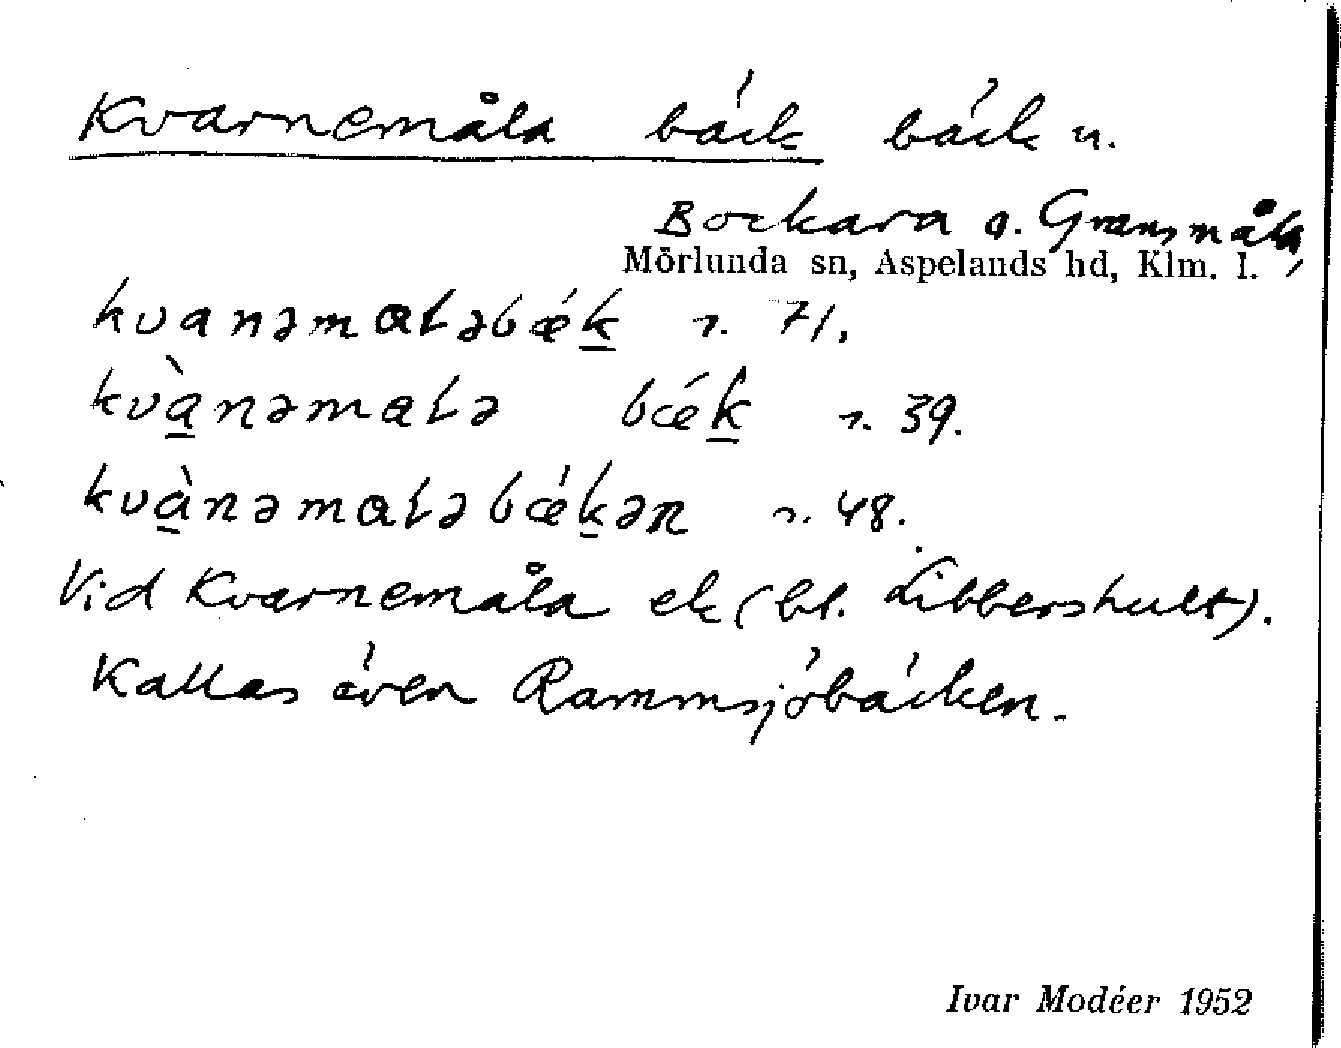 Kvarnemåla bäck bäck u.
Bockara o. Gransmåla,
Mörlunda sn, Aspelands hd, Klm. l.
kvanəmaɫəbǽk r. 71.
kvànəmaɫə bǽk r. 39.
kvànəmaɫəbǽkən r. 48.
Vid Kvarnemåla ek (bl. Libbershult).
Kallas även Rammsjöbäcken.
Ivar Modéer 1952